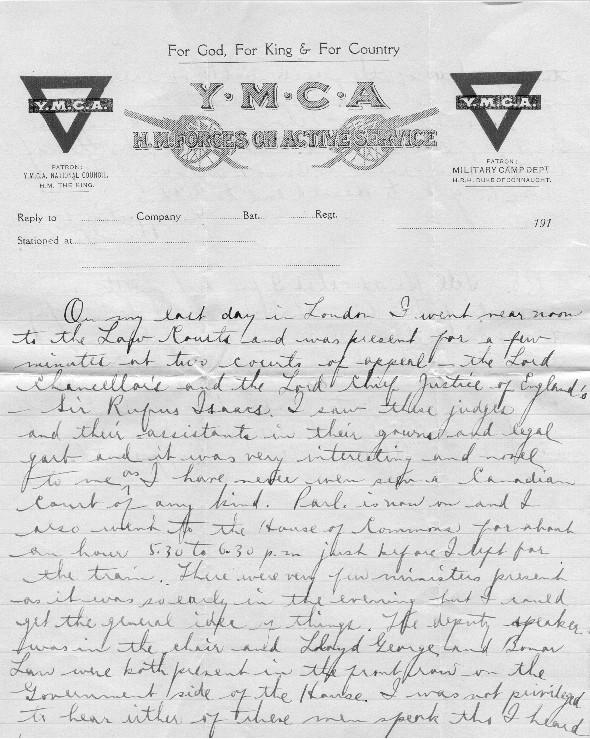 For God, For King & For Country
Y·M·C·A
H.M. FORCES ON ACTIVE SERVICE
Y.M.C.A.
PATRON:
Y.M.C.A. NATIONAL COUNCIL.
H.M. THE KING.
Y.M.C.A.
PATRON:
MILITARY CAMP DEPT.
H.R.H. DUKE OF CONNAUGHT.
Reply to Company Bat. Regt.
191
Stationed at
On my last day in London I went near noon
to the Law Courts and was present for a few
minutes at two courts of appeal - the Lord
Chancellor's and the Lord Chief Justice of England's
- Sir Rufus Isaacs. I saw these judges
and their assistants in their gowns and legal
garb and it was very interesting and novel
to me as I have never even seen a Canadian
Court of any kind. Parl. is now on and I
also went to the House of Commons for about
an hour 5.30 to 6.30 p.m. just before I left for
the train. There were very few ministers present
as it was so early in the evening but I could
get the general idea of things. The deputy speaker
was in the chair and Lloyd George and Bonar
Law were both present in the front row on the
Government side of the House. I was not privileged
to hear either of these men speak tho I heard